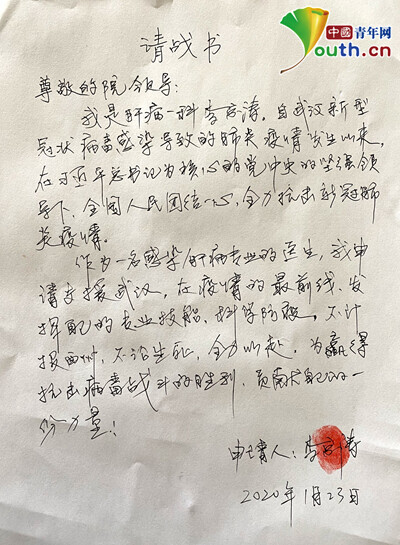 中國青年网
youth.cn
请战书
尊敬的院领导:
我是肝病一科李 涛, 自武汉新型
冠状病毒感染导致的肺炎疫情发生以来,
在习近平总书记为核心的党中央的坚强领
导下, 全国人民团结一心, 全力抗击新冠肺
炎疫情.
作为一名感染肝病专业的医生, 我申
请支援武汉, 在疫情的最前线, 发
挥自己的专业技能, 科学防 , 不计
报酬, 不论生死, 全力以赴, 为赢得
抗击病毒战斗的胜利, 贡献自己的一
份力量!
申请人: 李 涛
2020年1月23日